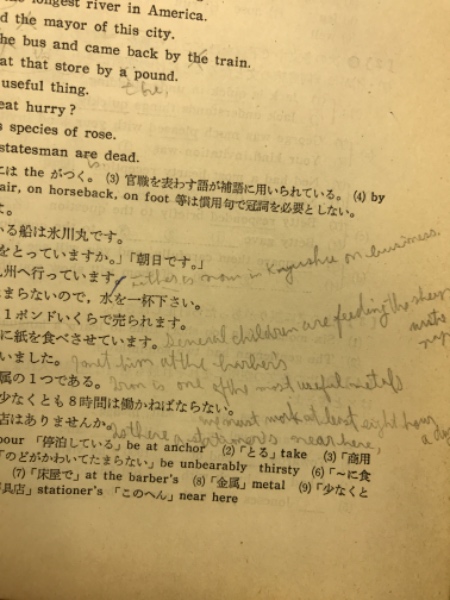 longest river in America.
the mayor of this city.
he bus and came back by the train.
at that store by a pound.
the
useful thing.
eat hurry?
s species of rose.
statesman are dead.
is
には the がつく。 (3) 官職を表わす語が補語に用いられている。 (4) by
air, on horseback, on foot 等は慣用句で冠詞を必要としない。
よ。
いる船は氷川丸です。
をとっていますか。」「朝日です。」
九州へ行っています。 is now in Kyushu on business.
たまらないので，水を一杯下さい。
１ポンドいくらで売られます。
に紙を食べさせています。 Several children are feeding the sheep
いました。 met him at the barber's
属の１つである。 Iron is one of the most useful metals
少なくとも８時間は働かねばならない。
must work at least eight hour
店はありませんか。 there a near here,
bour 「停泊している」 be at anchor (2)「とる」take (3)「商用
「のどがかわいてたまらない」be unbearably thirsty (6)「～に食
(7)「床屋で」at the barber's (8)「金属」metal (9)「少なくと
具店」stationer's 「このへん」near here